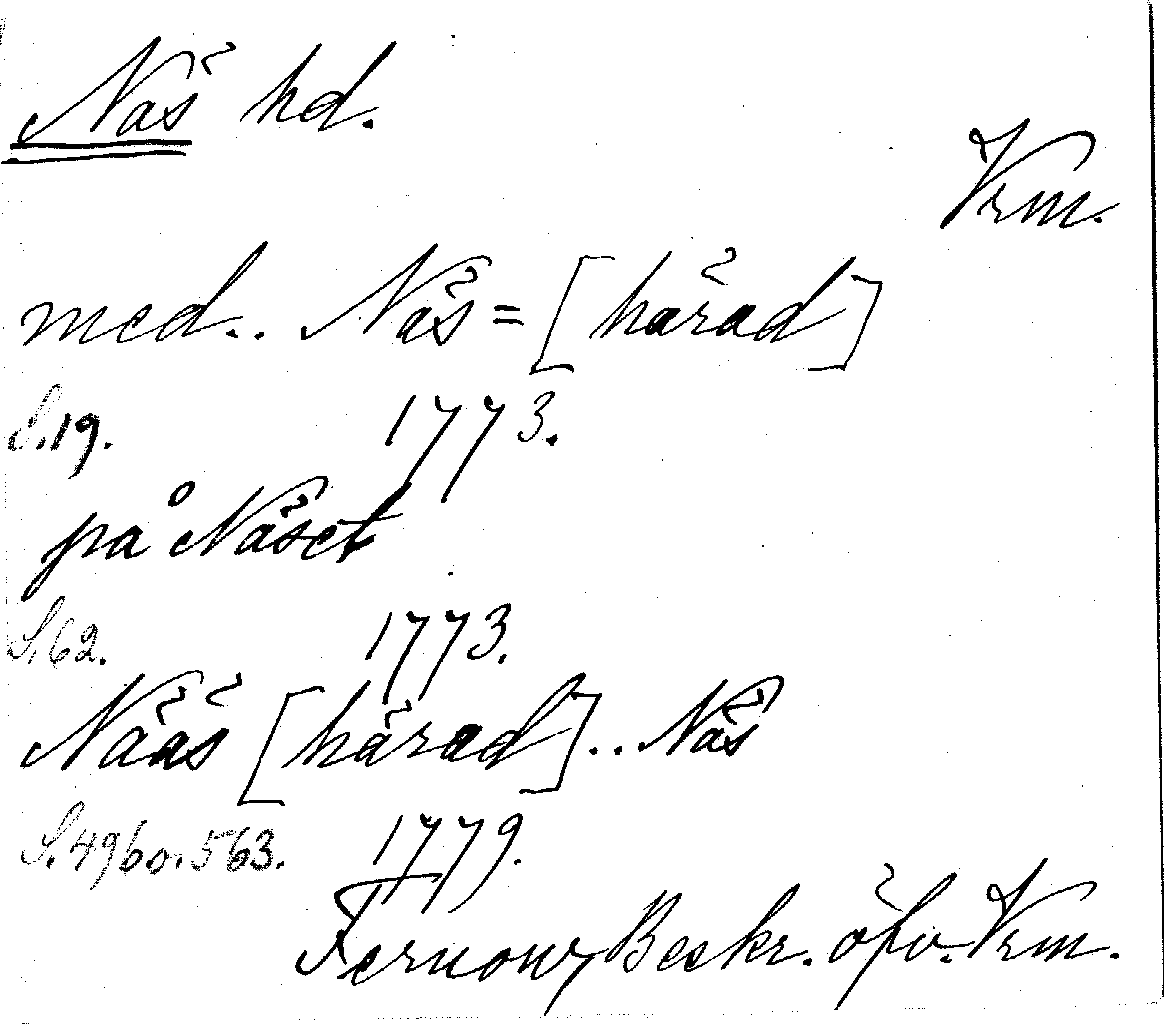 Näs hd.
Vrm.
med.. Näs=[härad]
S.19. 1773.
på Näset
S.62. 1773.
Nääs [härad]..Näs
S.496 o. 563. 1779.
Fernow, Beskr. öfv. Vrm.